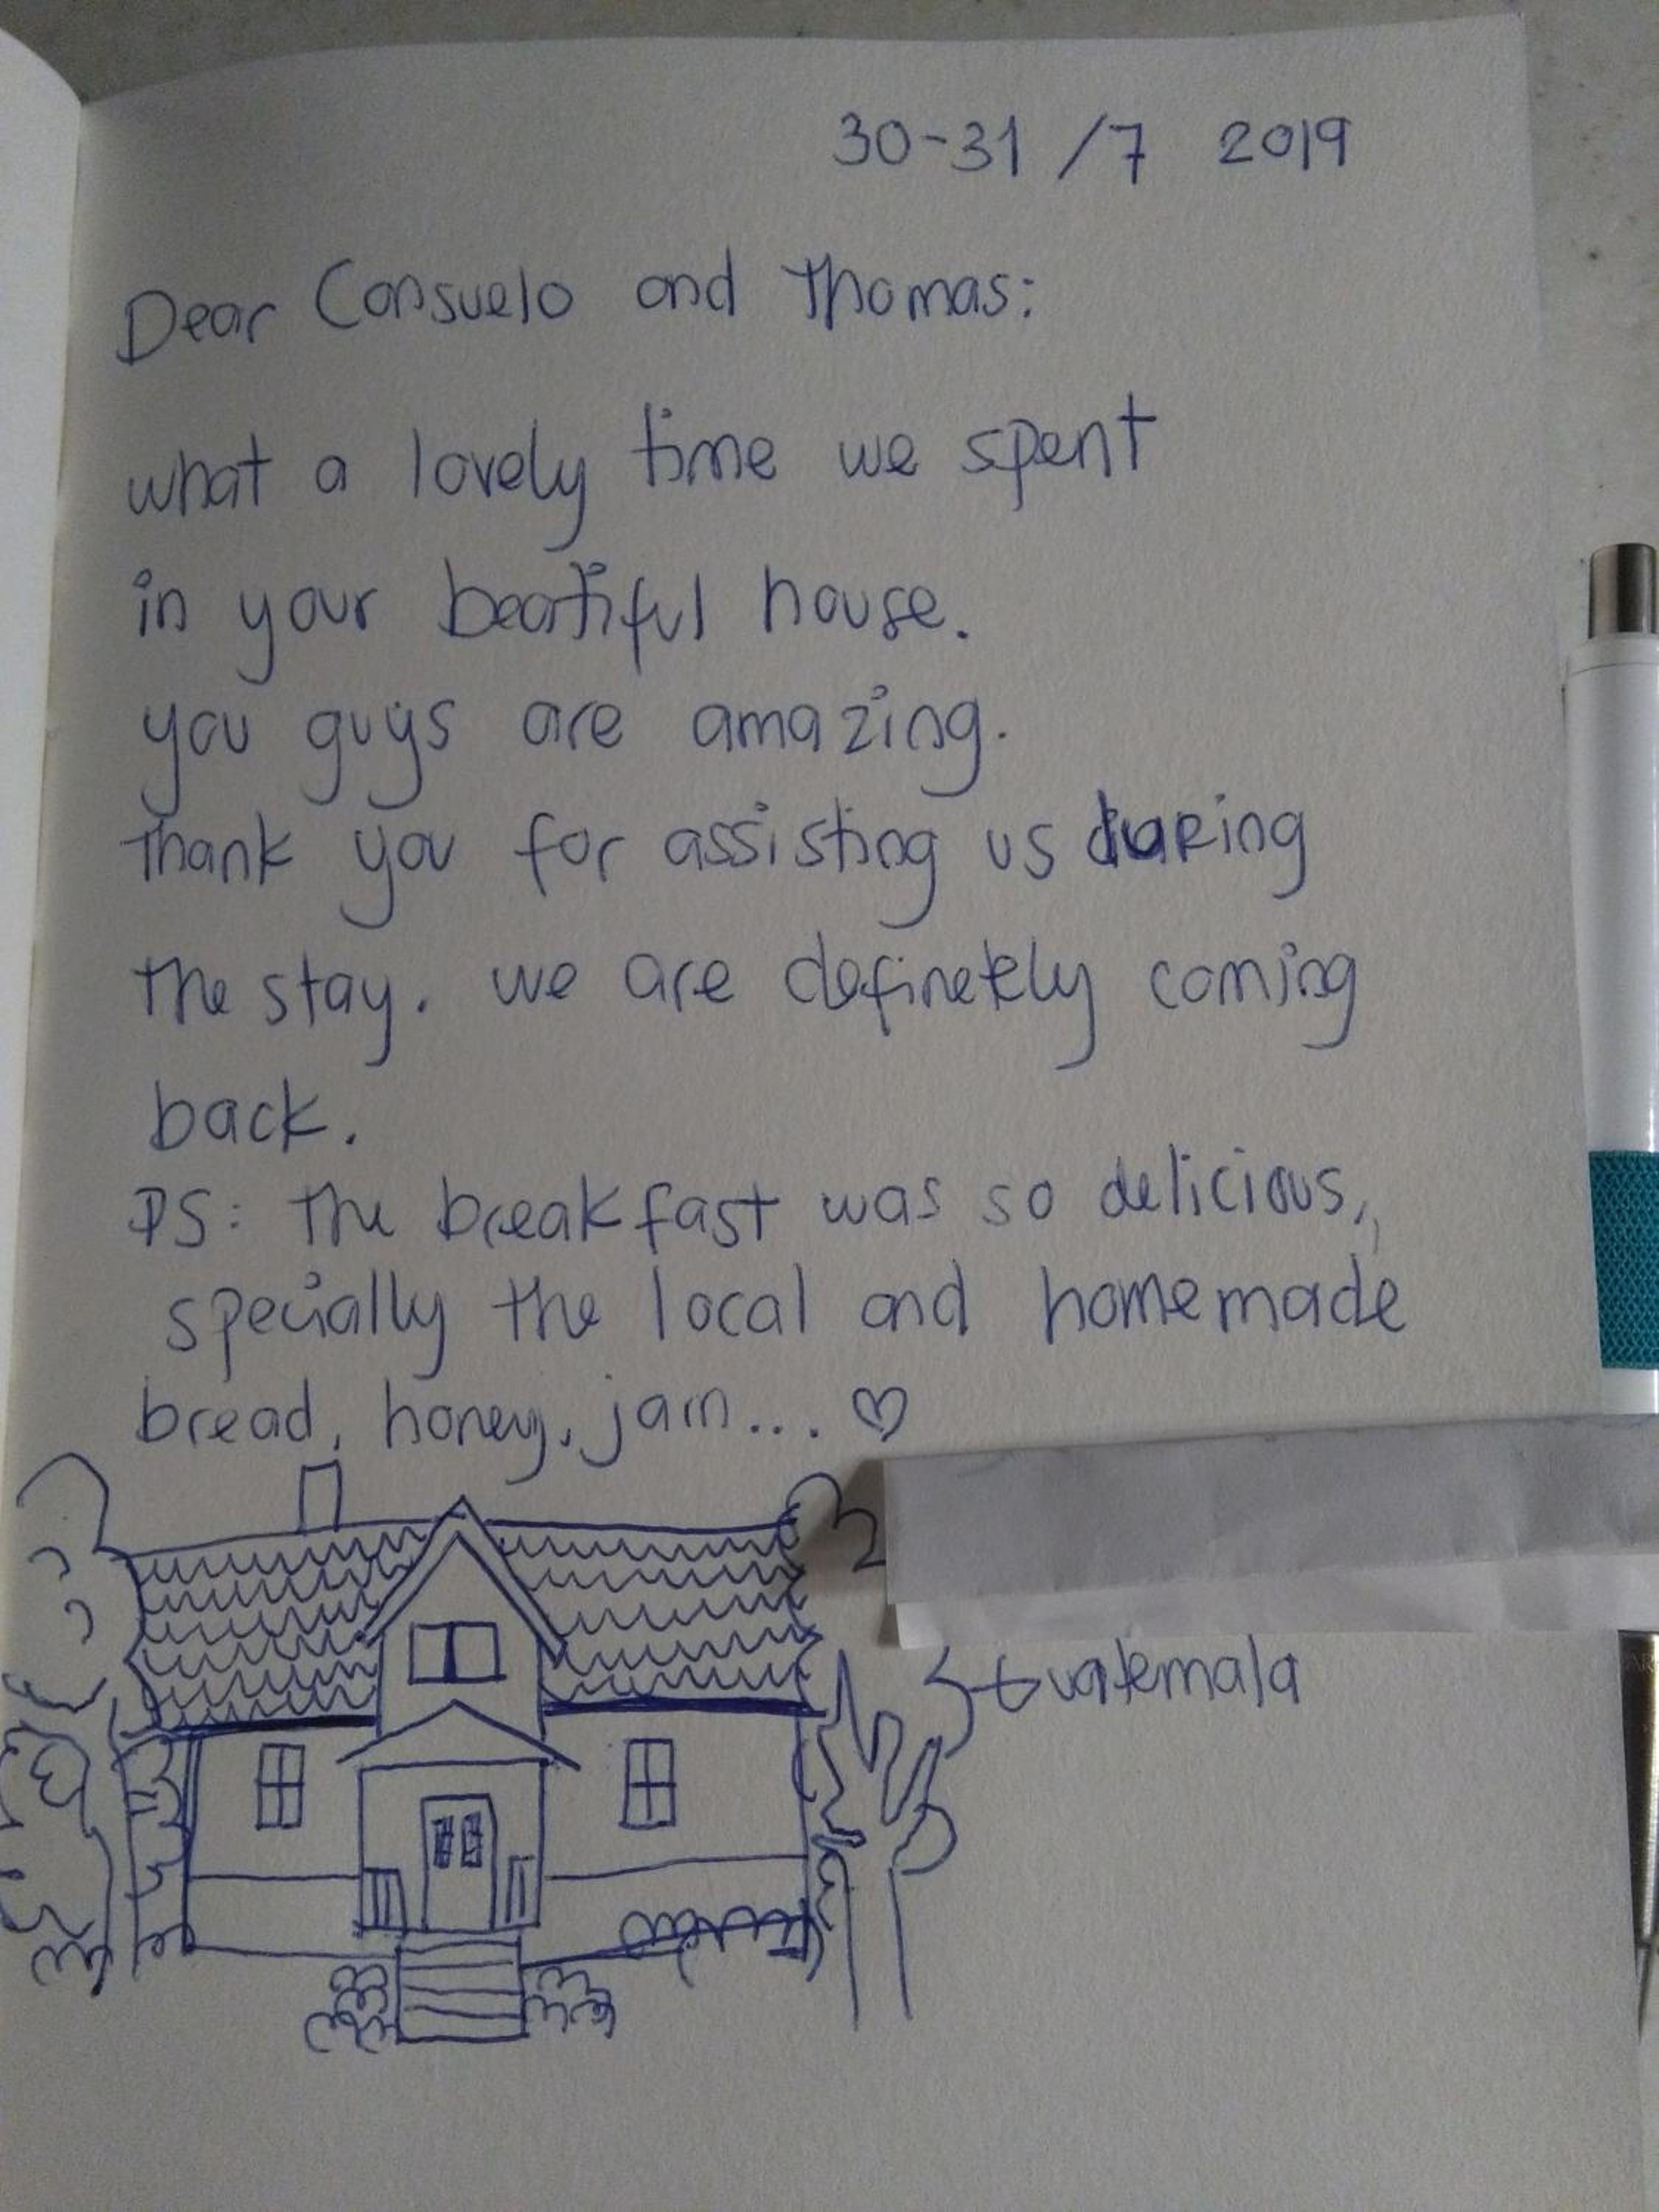 30-31 /7 2019
Dear Consuelo and Thomas:
what a lovely time we spent
in your beatiful house.
you guys are amazing.
Thank you for assisting us during
the stay. we are definetely coming
back.
PS: the breakfast was so delicious,
specially the local and homemade
bread, honey, jam... ♡
Guatemala